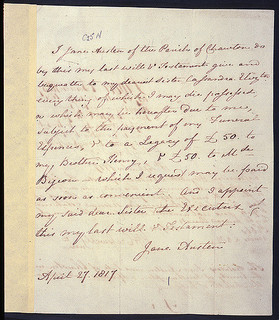 I Jane Austen of the Parish of Chawton do
by this my last Will & Testament give and
bequeath to my dearest Sister Cassandra Elizth
every thing of which I may die possessed,
or which may be hereafter due to me,
subject to the payment of my Funeral
Expences, & to a Legacy of £50. to
my Brother Henry, & £50. to M de
Bigeon - which I request may be paid
as soon as convenient. And I appoint
my said dear Sister the Executrix of
this my last Will & Testament.
Jane Austen
April 27. 1817